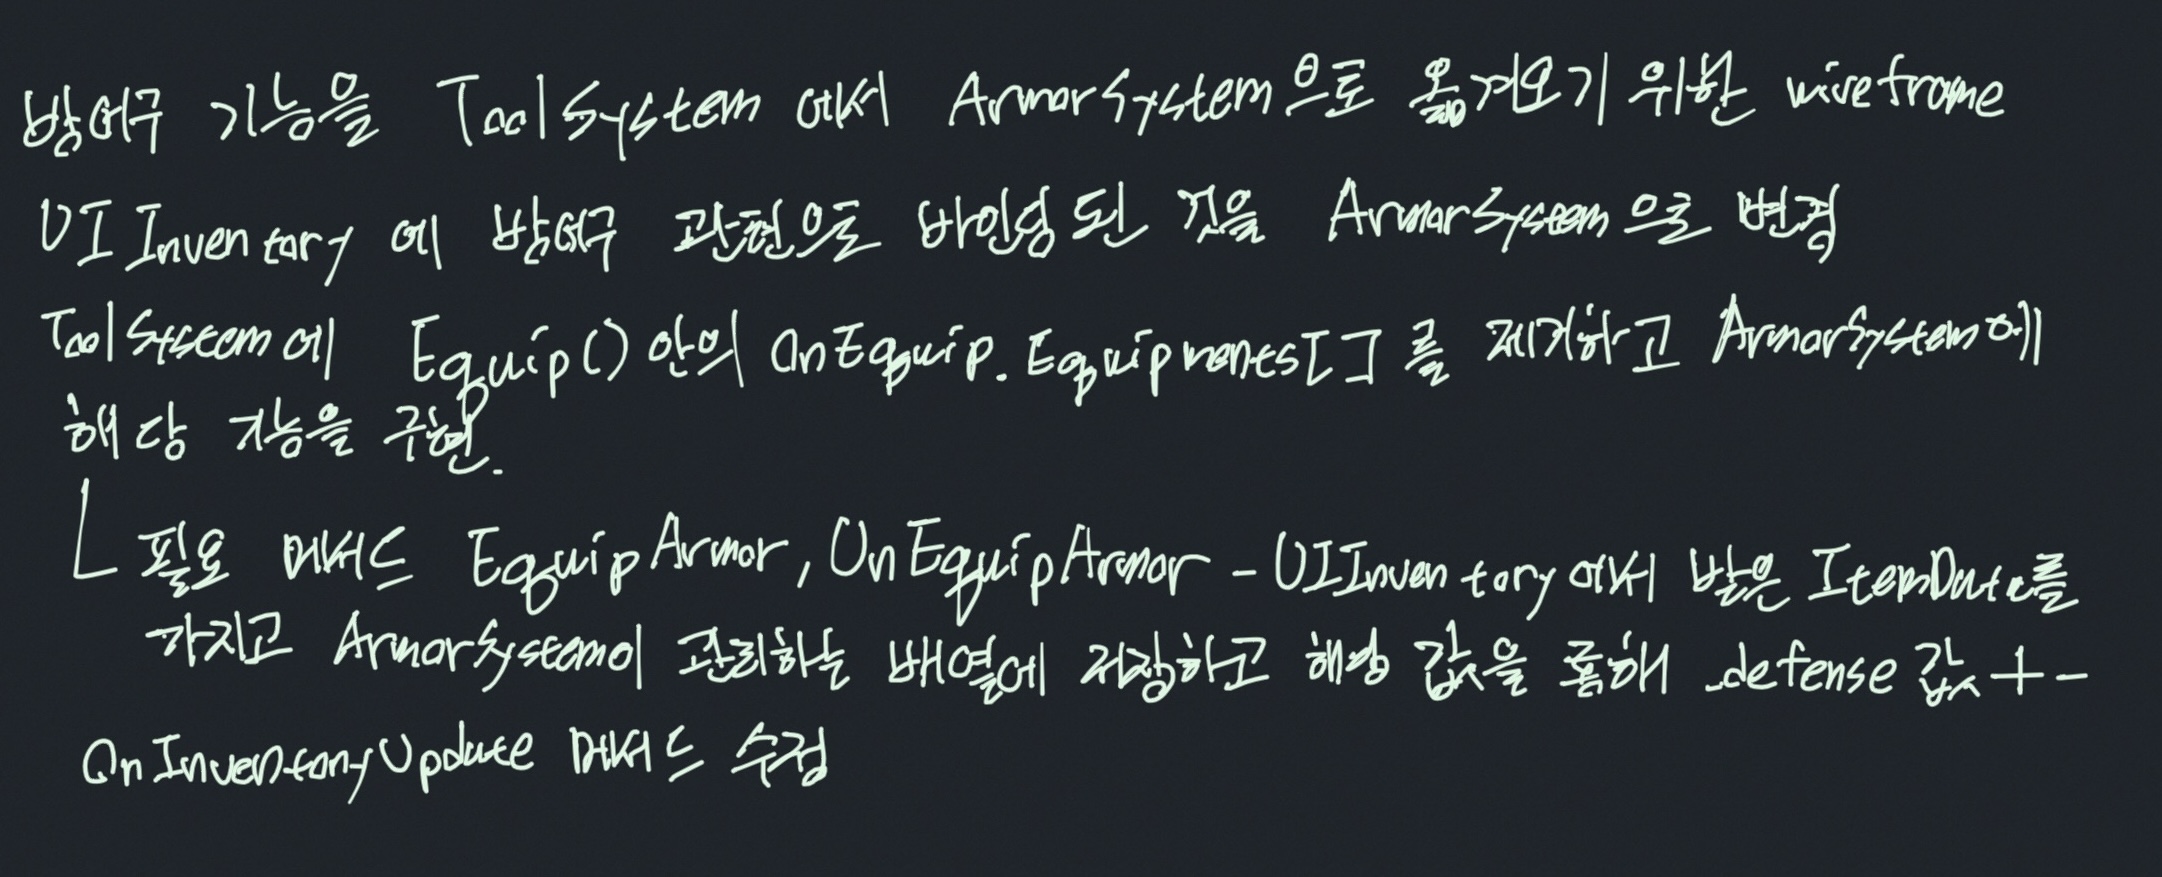 방어구 기능을 ToolSystem 에서 ArmorSystem으로 옮겨오기 위한 wireframe
UIInventory 에 방어구 관련으로 바인딩 된 것을 ArmorSystem 으로 변경
ToolSystem에 Equip() 안의 OnEquip.Equipments[] 를 제거하고 ArmorSystem에
해당 기능을 구현.
└ 필요 메서드 EquipArmor, UnEquipArmor - UIInventory에서 받은 ItemData를
가지고 ArmorSystem이 관리하는 배열에 저장하고 해당 값을 통해 _defense 값 + -
OnInventoryUpdate 메서드 수정